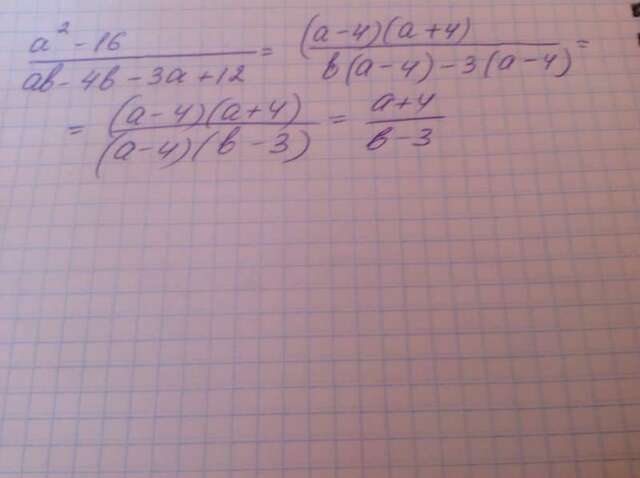 a² - 16 / ab - 4b - 3a + 12 = (a - 4)(a + 4) / b(a - 4) - 3(a - 4) =
= (a - 4)(a + 4) / (a - 4)(b - 3) = a + 4 / b - 3